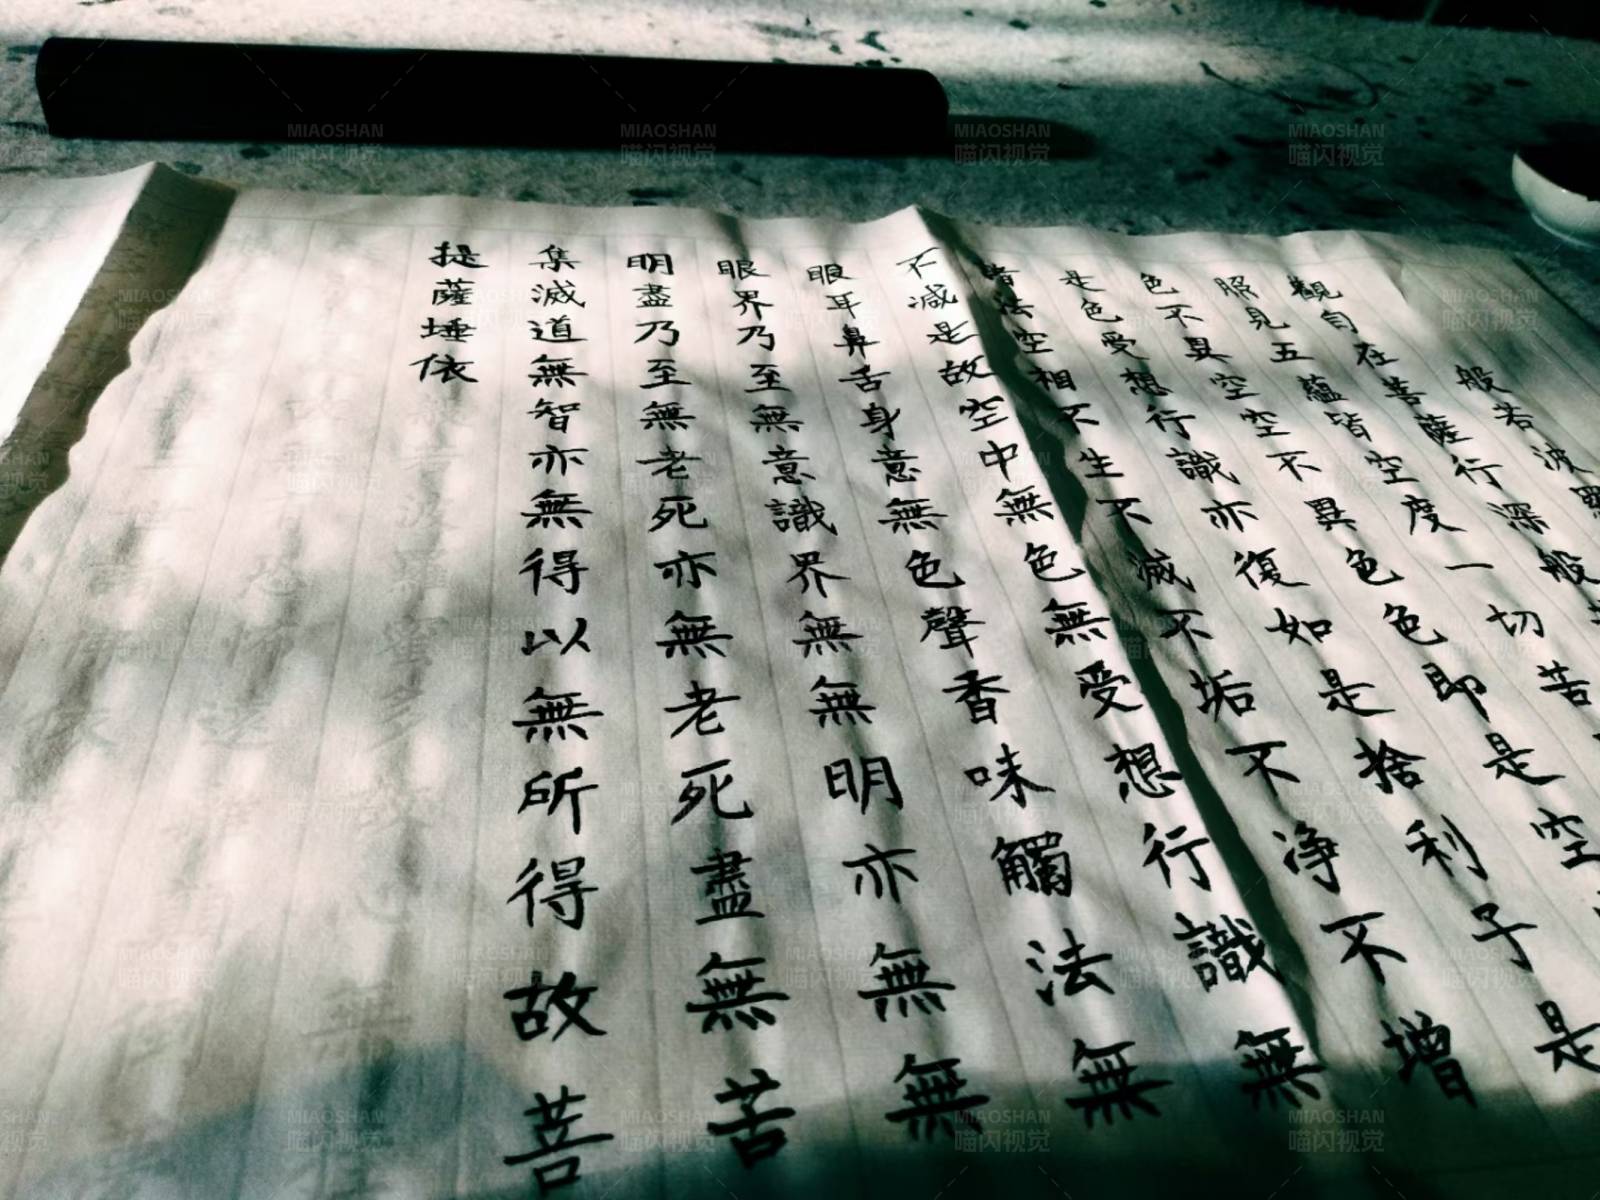 般若波羅
觀自在菩薩行深般
照見五蘊皆空度一切苦
色不異空空不異色色即是空
是色受想行識亦復如是捨利子是
法空相不生不滅不垢不净不增
不減是故空中無色無受想行識無
眼耳鼻舌身意無色聲香味觸法無
眼界乃至無意識界無無明亦無無
明盡乃至無老死亦無老死盡無苦
集滅道無智亦無得以無所得故菩
提薩埵依
MIAOSHAN
喵闪视觉